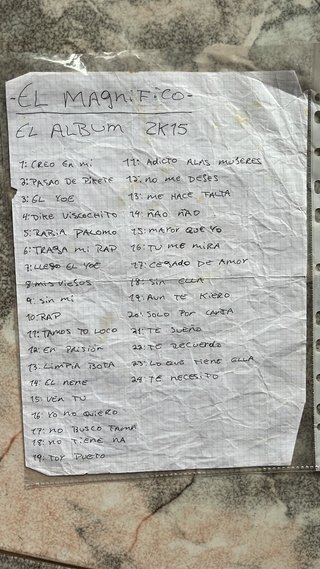 -EL MAGNIFICO-
EL ALBUM 2K15
1: CREO EN MI
2: PASAO DE PIKETE
3: EL YOE
4: DIKE VISCOCHITO
5: RABIA PALOMO
6: TRAGA MI RAP
7: LLEGO EL YOE
8: MIS VIEJOS
9: SIN MI
10: RAP
11: TAMOS TO LOCO
12: EN PRISIÓN
13: LIMPIA BOTA
14: EL NENE
15: VEN TU
16: YO NO QUIERO
17: NO BUSCO FAMA
18: NO TIENE NA
19: TOY PUETO
11: ADICTO ALAS MUJERES
12: NO ME DEJES
13: ME HACE FALTA
14: ÑAO ÑAO
15: MAYOR QUE YO
16: TU ME MIRA
17: CEGADO DE AMOR
18: SIN ELLA
19: AUN TE KIERO
20: SOLO POR CARTA
21: TE SUEÑO
22: TE RECUERDO
23: LO QUE TIENE ELLA
24: TE NECESITO